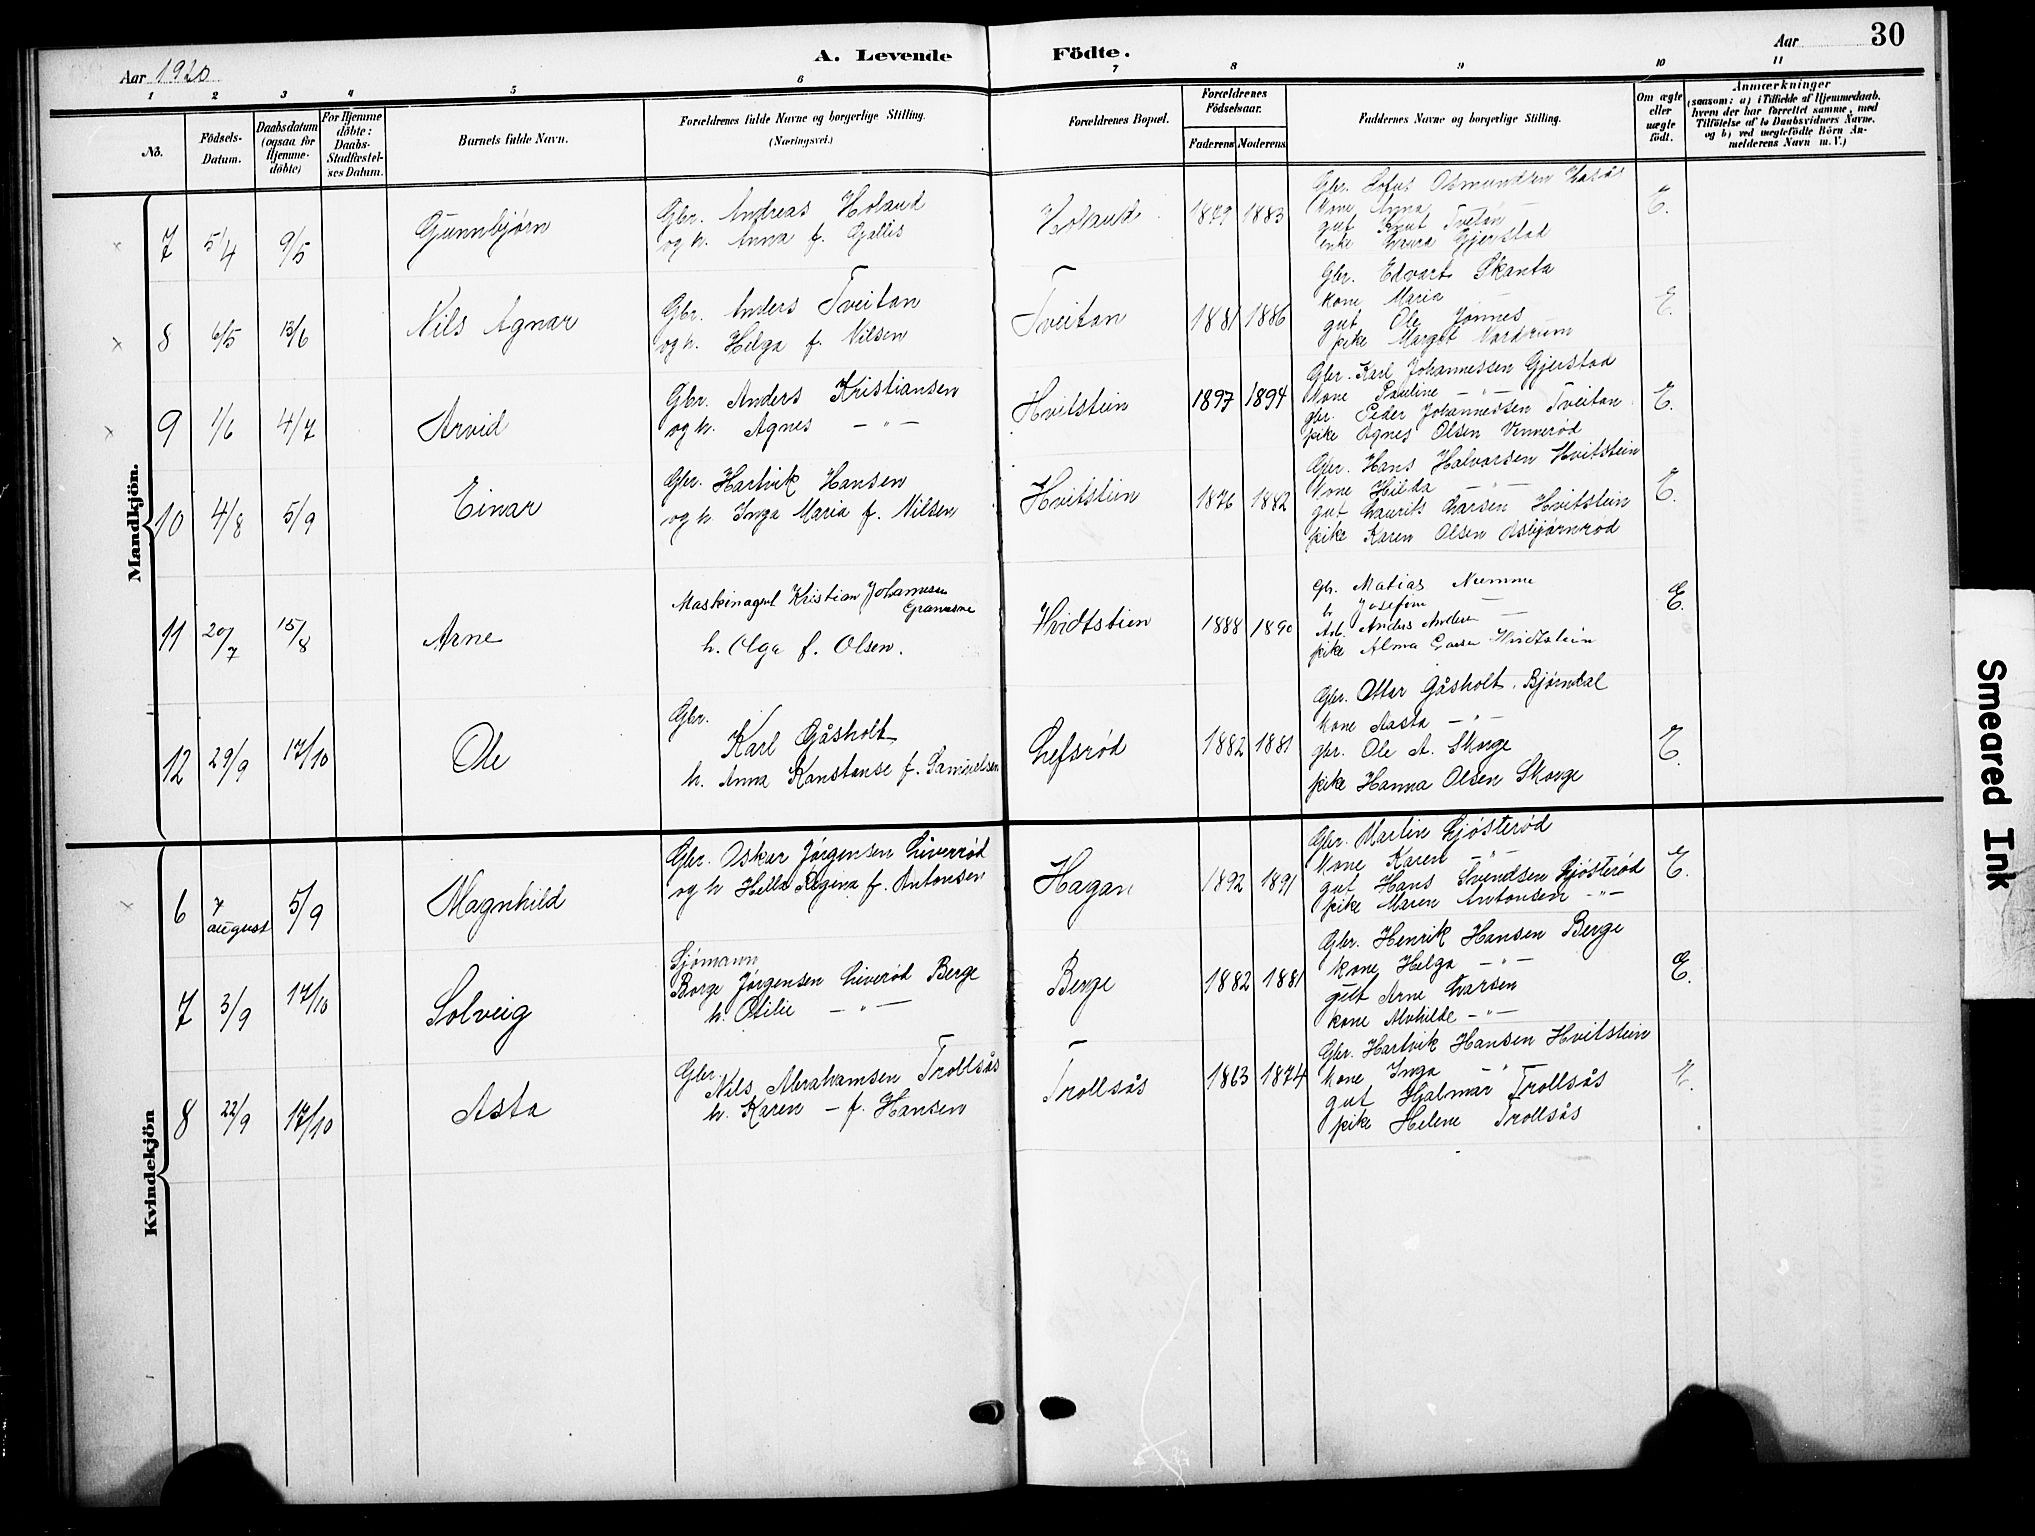 30
A. Levende Födte.
Aar 1920
Aar
1 2 3 4 5 6 7 8 9 10 11
No.
Födsels-Datum.
Daabsdatum (ogsaa for Hjemme-döbte)
For Hjemme döbte: Daabs-Stadfæstel-ses Datum.
Barnets fulde Navn.
Forældrenes fulde Navne og borgerlige Stilling.
(Næringsvei.)
Forældrenes Bopæl.
Forældrenes Födselsaar.
Faderens Moderens
Faddernes Navne og borgerlige Stilling.
Om ægte eller uægte födt.
Anmærkninger
(saasom: a) i Tilfælde af Hjemmedaab,
hvem der har forrettet samme, med
Tilföielse af to Daabsvidners Navne,
og b) ved uægtefödte Börn An-
melderens Navn m. V.)
Mandkjön.
7 5/4 9/5 Gunnbjørn
Gbr. Andreas Holand
og h. Anna f. Gjellis
Holand 1879 1883
Gbr. Sofus Osmundsen
kone Anna
gut Knut Tveitan
enke Laura Gjerstad
E.
8 6/5 13/6 Nils Agnar
Gbr. Anders Tveitan
og h. Helga f. Nilsen
Tveitan 1881 1886
Gbr. Edvart Skanta
kone Maria
gut Ole Jønnes
pike Margot Nordrum
E.
9 1/6 4/7 Arvid
Gbr. Anders Kristiansen
og h. Agnes — " —
Hvitstein 1897 1894
Gbr. Karl Johannessen Gjerstad
kone Pauline — " —
gbr. Peder Johannessen Tveitan
pike Agnes Olsen Vennerød
E.
10 4/8 5/9 Einar
Gbr. Hartvik Hansen
og h. Inga Maria f. Nilsen
Hvitstein 1876 1882
Gbr. Hans Halvorsen Hvitstein
kone Hilda — " —
gut Laurits Larsen Hvitstein
pike Karen Olsen Osbjørnrød
E.
11 20/7 15/8 Arne
Maskinagent Kristian Johannesen
h. Olga f. Olsen.
Hvidtstien 1888 1890
Gb. Matias Numme
h. Josefine —
Arb. Anders Andersen
pike Alma Larsen Hvidtstein
E.
12 29/9 17/10 Ole
Gbr.
Karl Gåsholt
h. Anna Konstanse f. Samuelsen
Lefsrød 1882 1881
Gbr. Ottar Gåsholt. Bjørndal
kone Aasta — " —
gbr. Ole A. Skorge
pike Hanna Olsen Skorge
E.
Kvindekjön
6 7 august 5/9 Magnhild
Gbr. Oskar Jørgensen Liverød
og h Hella Regina f. Antonsen
Hagan 1892 1891
Gbr. Martin Ljøsterød
kone Karen — " —
gut Hans Svendsen Ljøsterød
pike Maren Antonsen — " —
E.
7 3/9 17/10 Solveig
Sjømann
Borge Jørgensen Liverød Berge
h. Otilie — " —
Berge 1882 1881
Gbr. Henrik Hansen Berge
kone Helga — " —
gut Arne Larsen
kone Alvhilde — " —
E.
8 22/9 17/10 Asta
Gbr.
Nils Abrahamsen Trollsås
h. Karen — f. Hansen
Trollsås 1863 1874
Gbr. Hartvik Hansen Hvitstein
kone Inga — " —
gut Hjalmar Trollsås
pike Helene Trollsås
E.
Smeared Ink